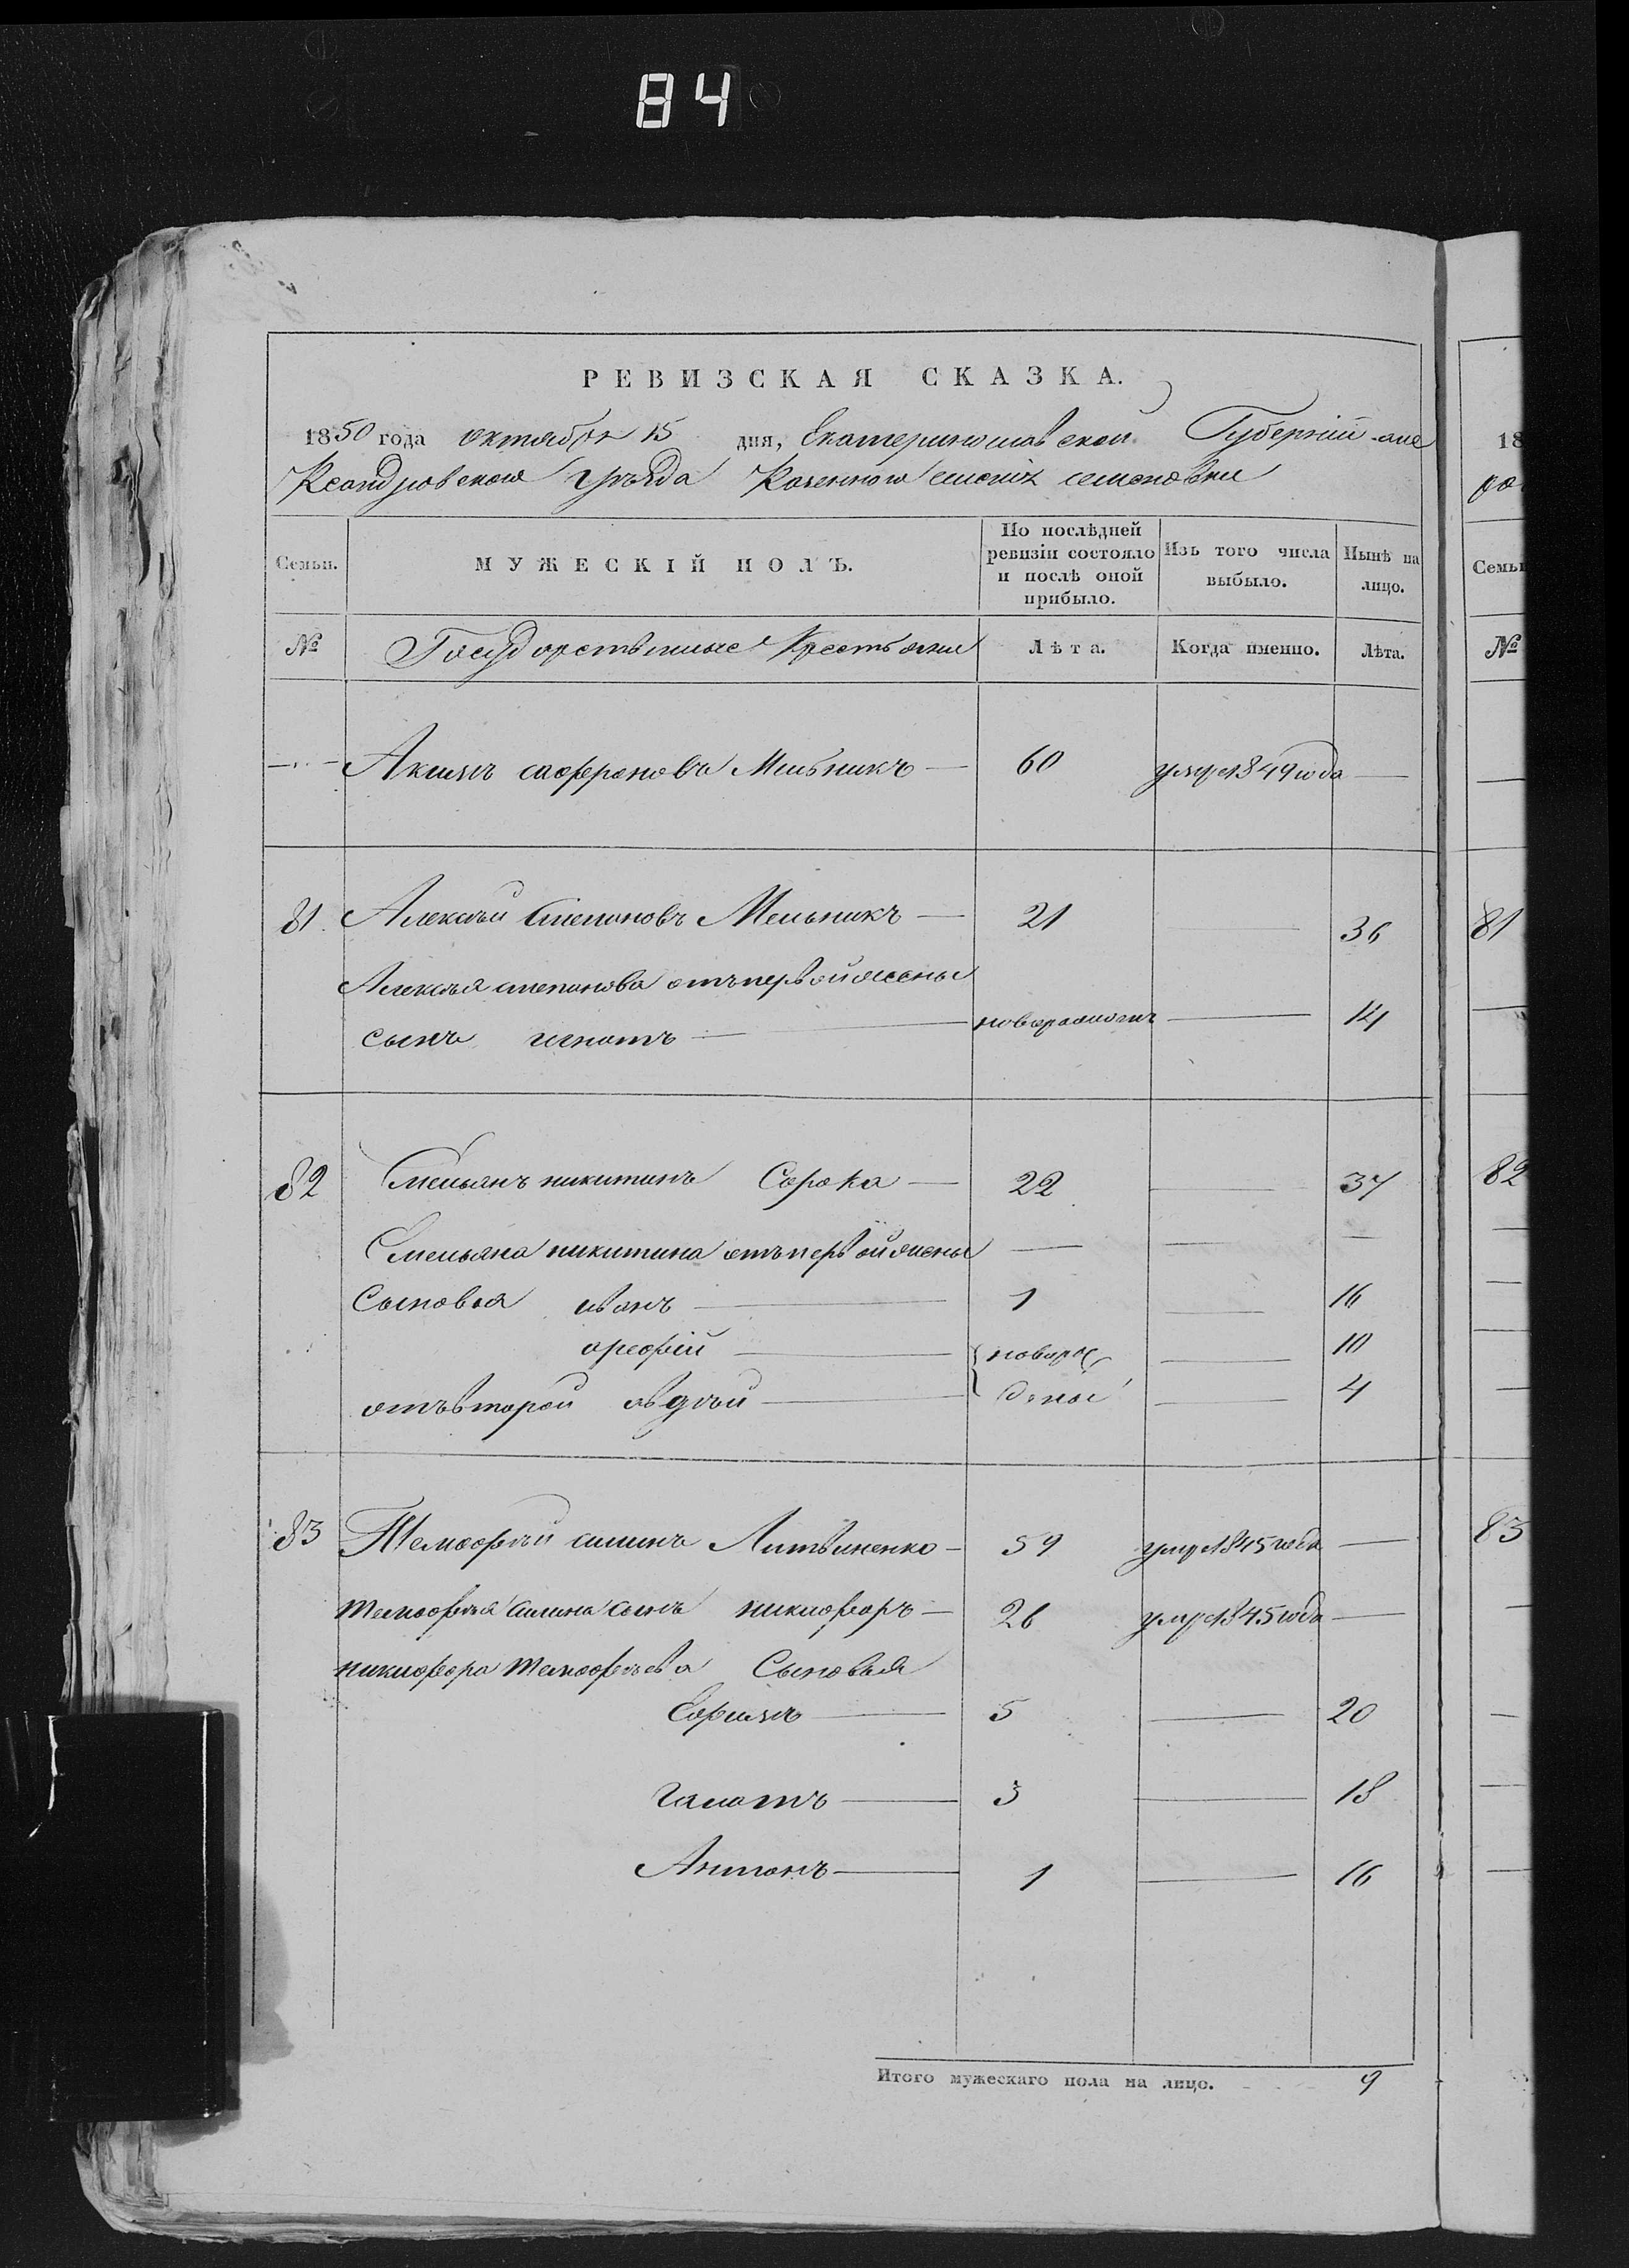 84
РЕВИЗСКАЯ СКАЗКА.
1850 года октября 15 дня, Екатеринославской Губерніи Але
Ксандровского уѣзда Казенного селенія семеновки
Семьи.
МУЖЕСКІЙ ПОЛЪ.
По послѣдней ревизіи состояло и послѣ оной прибыло.
Изъ того числа выбыло.
Нынѣ на лицо.
№ Государственные Крестьяне Лѣта. Когда именно. Лѣта.
Акимъ сафроновъ Мельникъ — 60 умре 1849 года —
81 Алексѣй Степановъ Мельникъ — 21 — 36
Алексѣя степанова отъ первой жены
сынъ игнатъ — — 14
82 Емельянъ никитинъ Сорока — 22 — 37
Емельяна никитина отъ первой жены — — —
Сыновья иванъ — 1 — 16
арефій — новорож — 10
отъ второй авдѣй — деные — 4
83 Тимофѣй силинъ Литвиненко — 59 умре 1845 года —
тимофѣя силина сынъ никифоръ — 26 умре 1845 года —
никифора тимофѣева Сыновья
Ефимъ — 5 — 20
игнатъ — 3 — 18
Антонъ — 1 — 16
Итого мужескаго пола на лицо. 9
18
Семьи
№
81
82
83